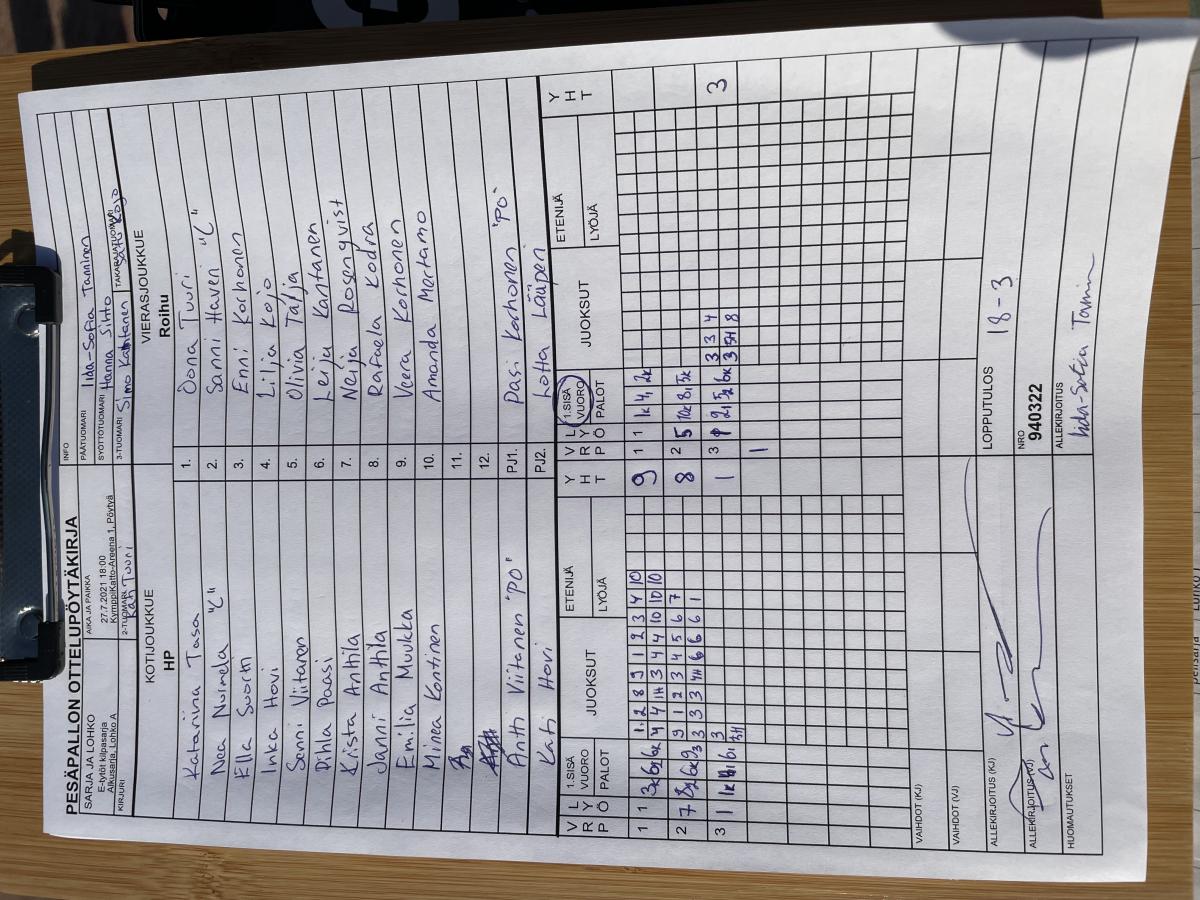 PESÄPALLON OTTELUPÖYTÄKIRJA
SARJA JA LOHKO
E-tytöt kilpasarja
Alkusarja, Lohko A
AIKA JA PAIKKA
27.7.2021 18:00
KymppiKatto-Areena 1, Pöytyä
INFO
PÄÄTUOMARI Iida-Sofia Taminen
SYÖTTÖTUOMARI Hanna Sihto
KIRJURI
2-TUOMARI Kati Tuuri
3-TUOMARI Simo Kantanen
TAKARAJATUOMARI Satu Kojo
KOTIJOUKKUE
HP
VIERASJOUKKUE
Roihu
Katariina Tasa 1. Oona Tuuri
Nea Nurmela "C" 2. Sanni Haveri "C"
Ella Suorti 3. Enni Korhonen
Inka Hovi 4. Lilja Kojo
Senni Viitanen 5. Olivia Talja
Pihla Paasi 6. Leiju Kantanen
Krista Anttila 7. Neija Rosenqvist
Janni Anttila 8. Rafaela Kodra
Emilia Muukka 9. Veera Korhonen
Minea Kontinen 10. Amanda Mertamo
11.
12.
Antti Viitanen "PO" PJ1. Pasi Korhonen "PO"
Kati Hovi PJ2. Lotta Lääperi
VRP LYÖ 1.SISÄ VUORO PALOT JUOKSUT ETENIJÄ LYÖJÄ YHT
VRP LYÖ 1.SISÄ VUORO PALOT JUOKSUT ETENIJÄ LYÖJÄ YHT
1 1 1 2 8 9 1 2 3 4 10 9
4 4 1H 3 4 4 10 10 10
1 1
2 7 9 1 2 3 4 5 6 7 8
3 3 3 4H 6 6 6 1
2 5
3 1 3 1
3 3 3 4 3
1
VAIHDOT (KJ)
VAIHDOT (VJ)
ALLEKIRJOITUS (KJ)
LOPPUTULOS 18-3
ALLEKIRJOITUS (VJ)
NRO
940322
HUOMAUTUKSET
ALLEKIRJOITUS
Iida-Sofia Tamin